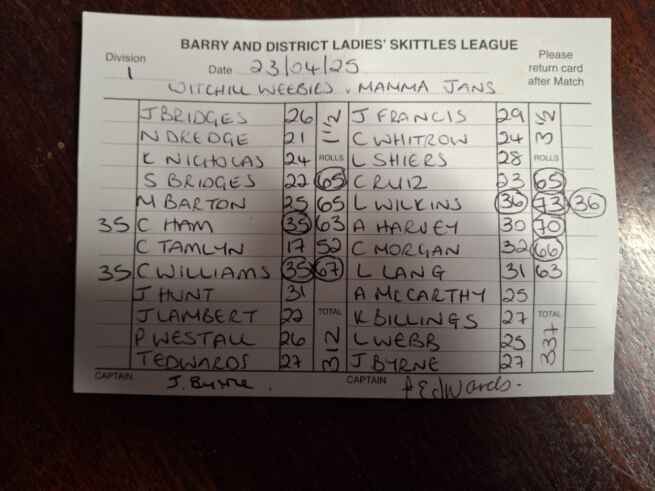 BARRY AND DISTRICT LADIES' SKITTLES LEAGUE
Division 1 Date 23/04/25 Please return card after Match
WITCHILL WEEBIES v MAMMA JANS
J BRIDGES 26 1 1/2 J FRANCIS 29 3 1/2
N DREDGE 21 C WHITROW 24
K NICHOLAS 24 ROLLS L SHIERS 28 ROLLS
S BRIDGES 22 65 C RUIZ 23 65
M BARTON 25 65 L WILKINS 36 73 36
35 C HAM 35 63 A HARVEY 30 70
C TAMLYN 17 52 C MORGAN 32 66
35 C WILLIAMS 35 67 L LANG 31 63
J HUNT 31 A MCCARTHY 25
J LAMBERT 22 TOTAL K BILLINGS 27 TOTAL
P WESTALL 26 312 L WEBB 25 337
T EDWARDS 27 J BYRNE 27
CAPTAIN J. Byrne. CAPTAIN Edwards.